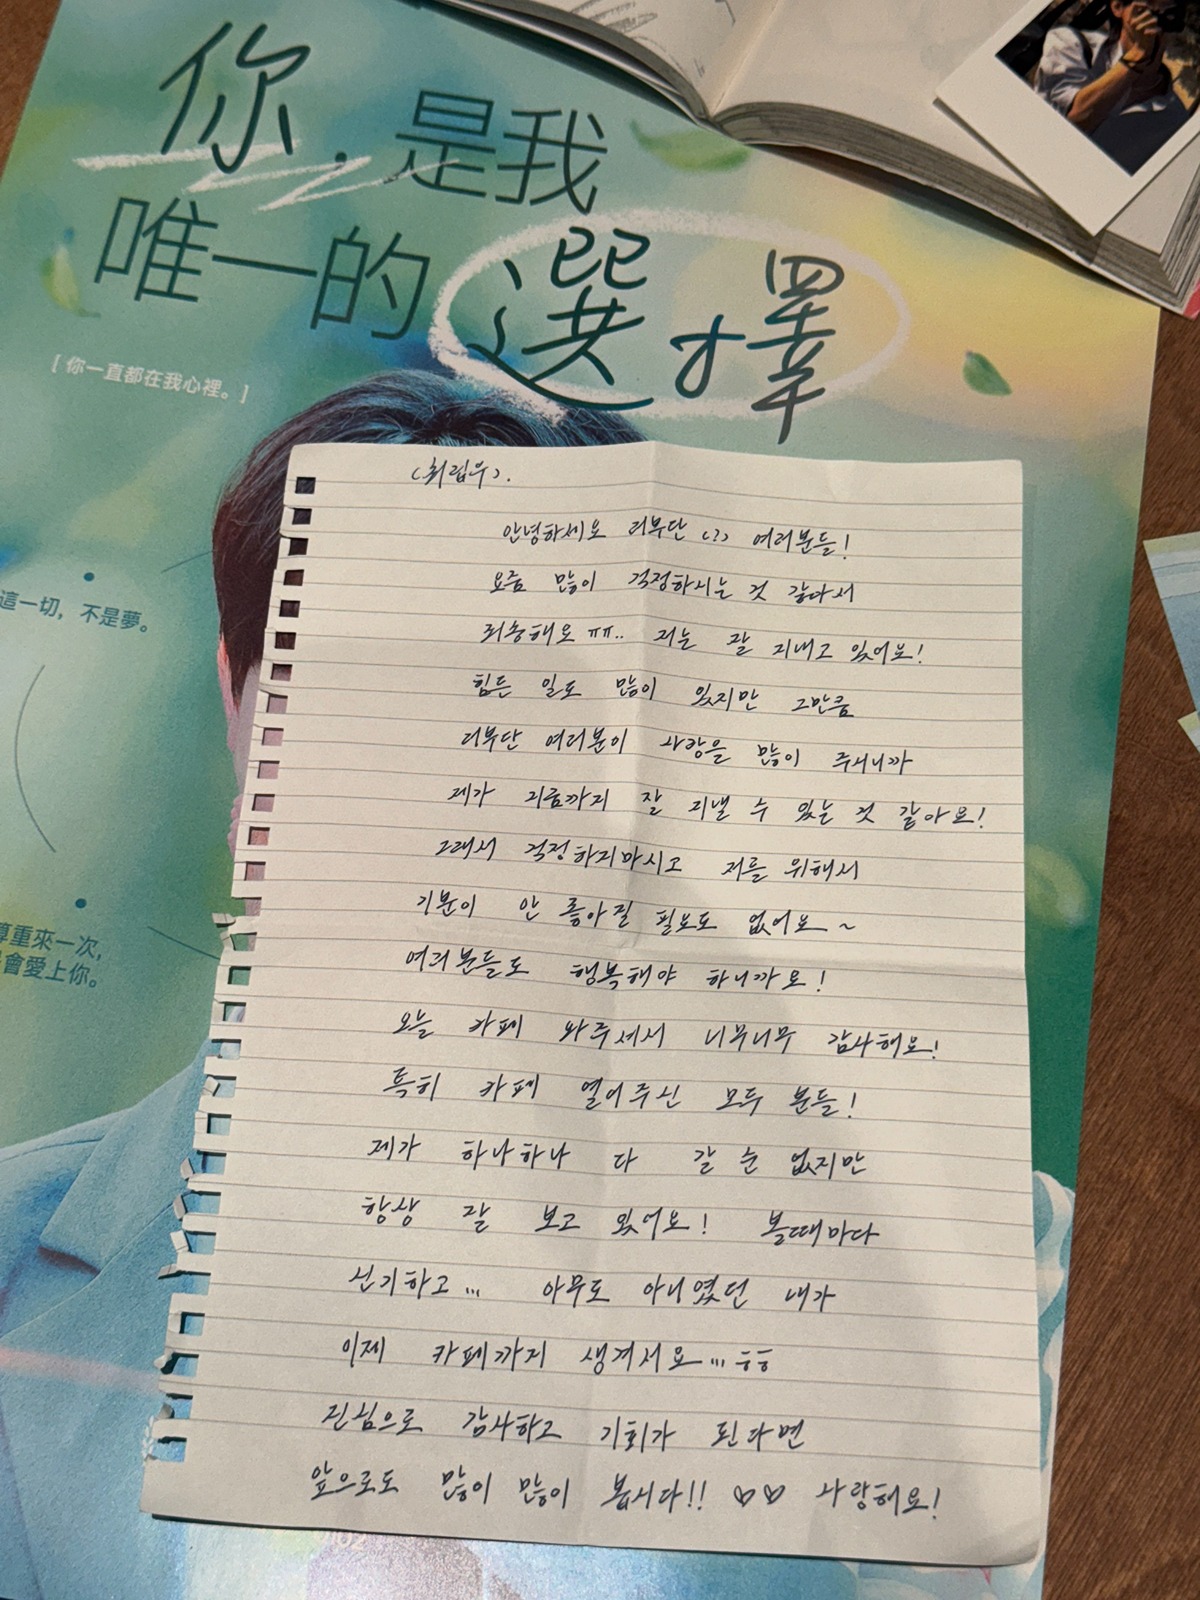 你,是我
唯一的選擇
[ 你一直都在我心裡。]
這一切，不是夢。
尊重來一次,
會愛上你。
(최립우).
안녕하세요 리부단 (?) 여러분들!
요즘 많이 걱정하시는 것 같아서
죄송해요 ㅠㅠ.. 저는 잘 지내고 있어요!
힘든 일도 많이 있지만 그만큼
리부단 여러분이 사랑을 많이 주시니까
제가 지금까지 잘 지낼 수 있는 것 같아요!
그래서 걱정하지마시고 저를 위해서
기분이 안 좋아질 필요도 없어요~
여러분들도 행복해야 하니까요!
오늘 카페 와주셔서 너무너무 감사해요!
특히 카페 열어주신 모두 분들!
제가 하나하나 다 갈 순 없지만
항상 잘 보고 있어요! 볼때마다
신기하고... 아무도 아니였던 내가
이제 카페까지 생겨서요...ㅎㅎ
진심으로 감사하고 기회가 된다면
앞으로도 많이 많이 봅시다!! ♡♡ 사랑해요!
02